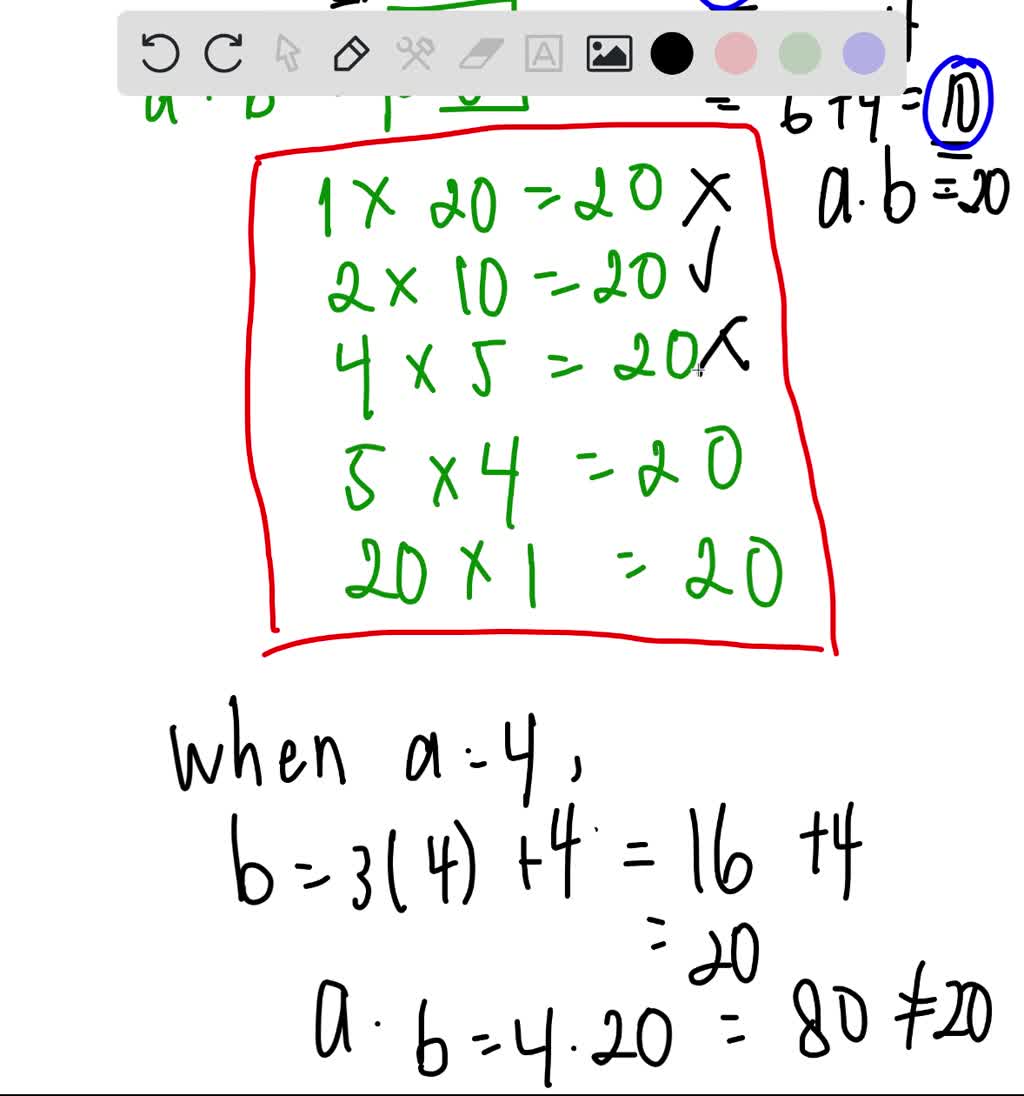 a · b
= 6 + 4 = 10
a · b = 20
1 × 20 = 20 ×
2 × 10 = 20 ✓
4 × 5 = 20 ×
5 × 4 = 20
20 × 1 = 20
when a = 4,
b = 3(4) + 4 = 16 + 4
= 20
a · b = 4 · 20 = 80 ≠ 20